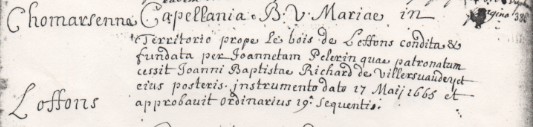 Chomarsenna Capellania B. V. Mariae in pagina 38
Territorio prope le bois de Leffons condita &
fundata per Joannetum Pelerin quae patronatum
cessit Joanni Baptistae Richard de Villersuaudey et
Loffons eius posteris. instrumento dato 17 Maij 1665 et
approbavit ordinarius 19ª Sequentis.